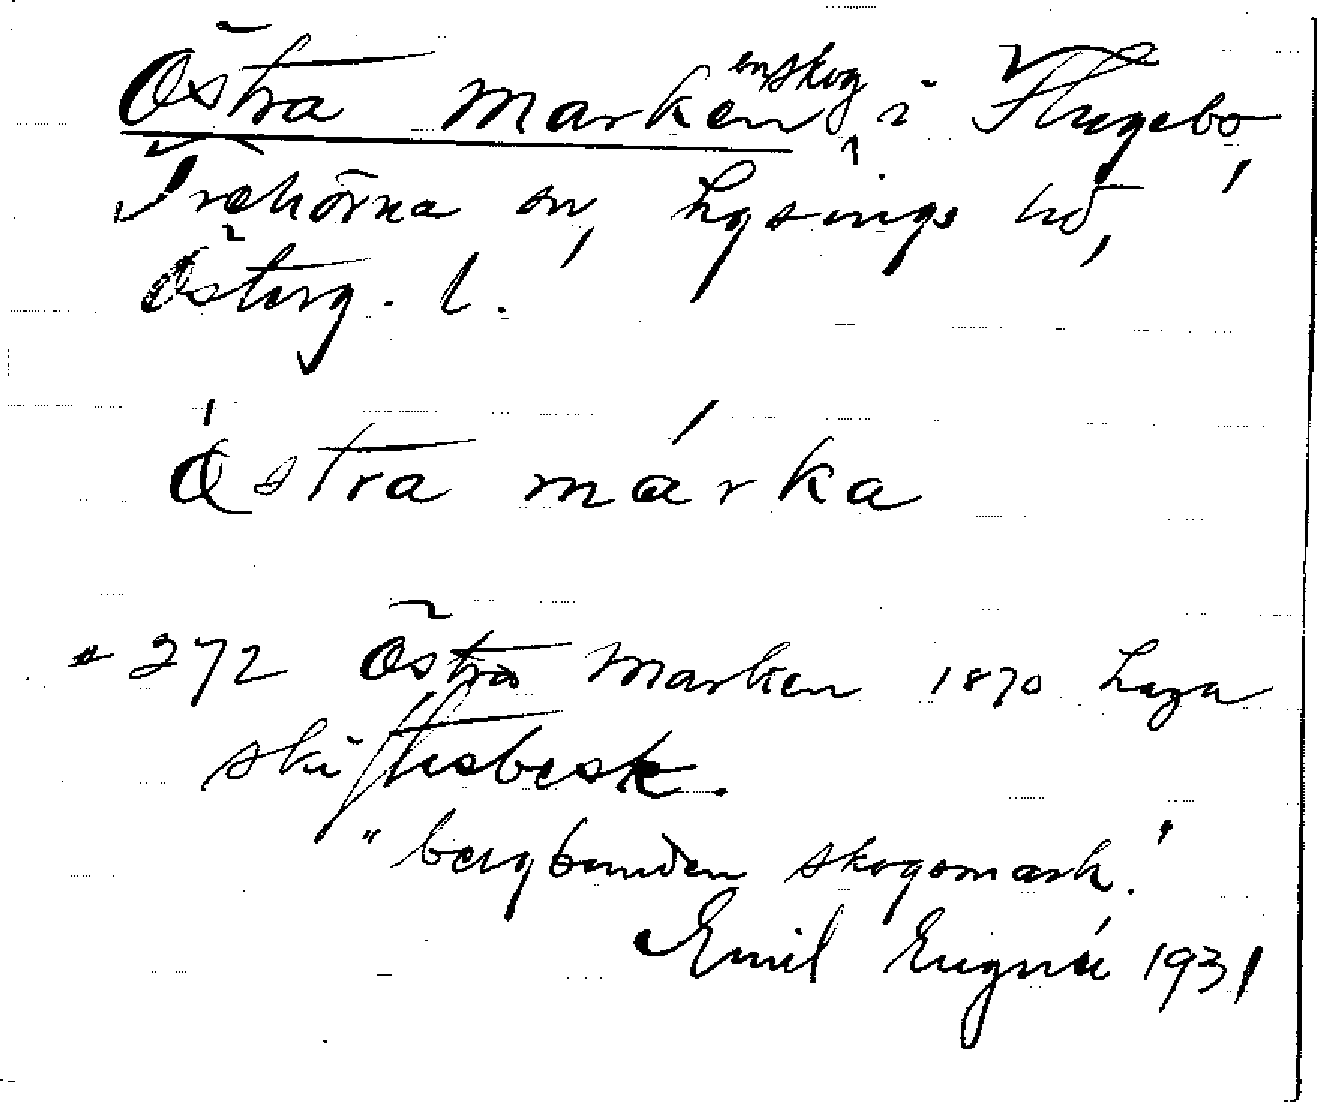 Östra Marken, en skog i Flugebo,
Trehörna sn, Lysings hd,
Österg. l.
Östra márka
272 Östra Marken 1870 Laga
skiftesbeskr.
"bergbunden skogsmark."
Emil 1931